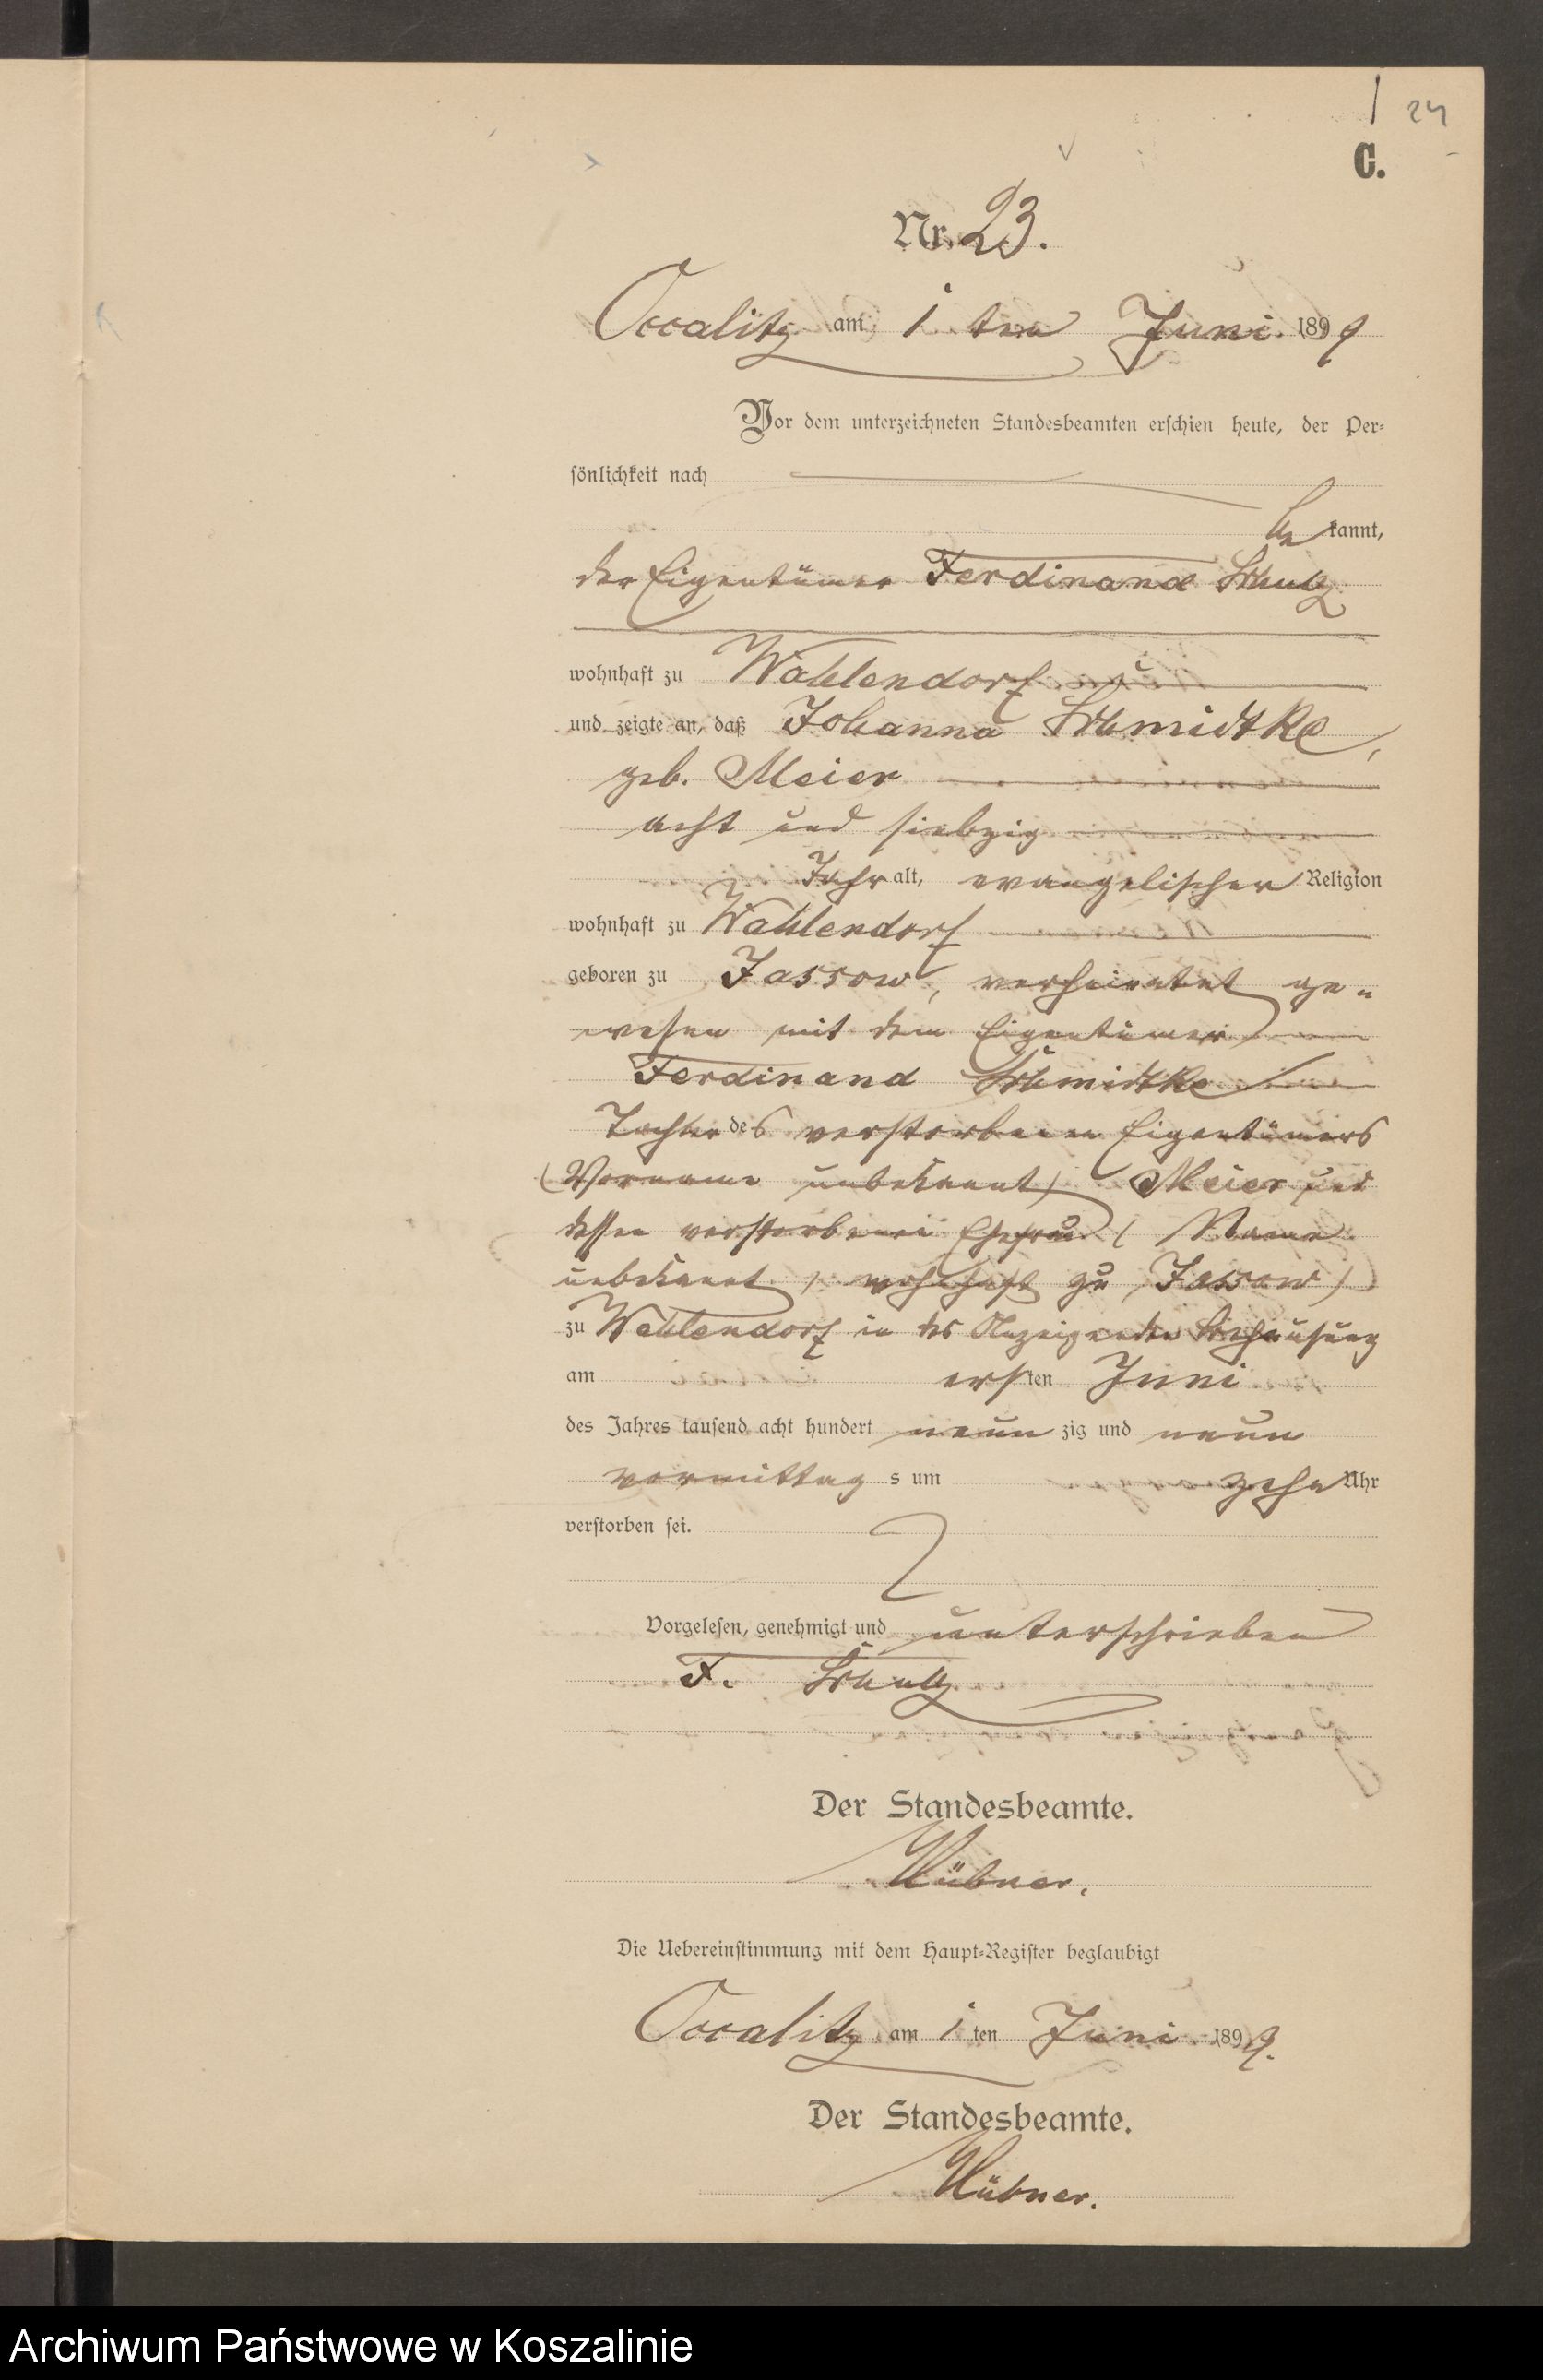 24
C.
Nr. 23.
Occalitz am 1 ten Juni 1899
Vor dem unterzeichneten Standesbeamten erschien heute, der Per-
sönlichkeit nach
be kannt,
der Eigentümer Ferdinand Schulz
wohnhaft zu Wahlendorf
und zeigte an, daß Johanna Schmidtke,
geb. Meier
acht und siebzig
Jahr alt, evangelischer Religion
wohnhaft zu Wahlendorf
geboren zu Jassow, verheiratet ge-
wesen mit dem Eigentümer
Ferdinand Schmidtke
Tochter des verstorbenen Eigentümers
(Vorname unbekannt) Meier und
dessen verstorbenen Ehefrau (Name
unbekannt, wohnhaft zu Jassow)
zu Wahlendorf in des Anzeigenden Behausung
am ersten Juni
des Jahres tausend acht hundert neun zig und neun
vormittag s um zehn Uhr
verstorben sei.
Vorgelesen, genehmigt und unterschrieben
F. Schulz
Der Standesbeamte.
Hübner.
Die Uebereinstimmung mit dem Haupt-Register beglaubigt
Occalitz am 1 ten Juni 1899.
Der Standesbeamte.
Hübner.
Archiwum Państwowe w Koszalinie